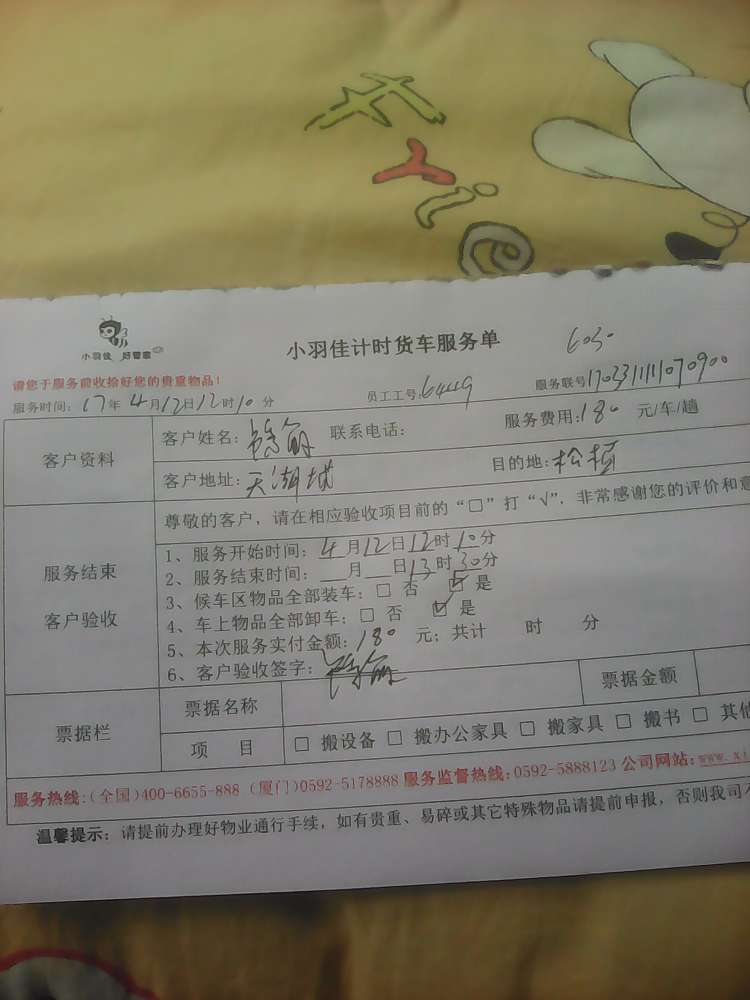 小羽佳 好管家
小羽佳计时货车服务单
请您于服务前收拾好您的贵重物品!
服务时间: 17年 4月12日12时10分 员工工号: 6449 服务联号 17033111070900
客户资料
客户姓名: 联系电话: 服务费用: 180 元/车/趟
客户地址: 天湖城 目的地: 松柏
服务结束
客户验收
尊敬的客户, 请在相应验收项目前的“□”打“√”, 非常感谢您的评价和意
1、服务开始时间: 4月12日12时10分
2、服务结束时间: __月__日13时30分
3、候车区物品全部装车: □ 否 ☑ 是
4、车上物品全部卸车: □ 否 ☑ 是
5、本次服务实付金额: 180 元; 共计 时 分
6、客户验收签字:
票据栏
票据名称 票据金额
项 目 □ 搬设备 □ 搬办公家具 □ 搬家具 □ 搬书 □ 其他
服务热线:(全国)400-6655-888 (厦门)0592-5178888 服务监督热线:0592-5888123 公司网站: www.xi
温馨提示: 请提前办理好物业通行手续, 如有贵重、易碎或其它特殊物品请提前申报, 否则我司不